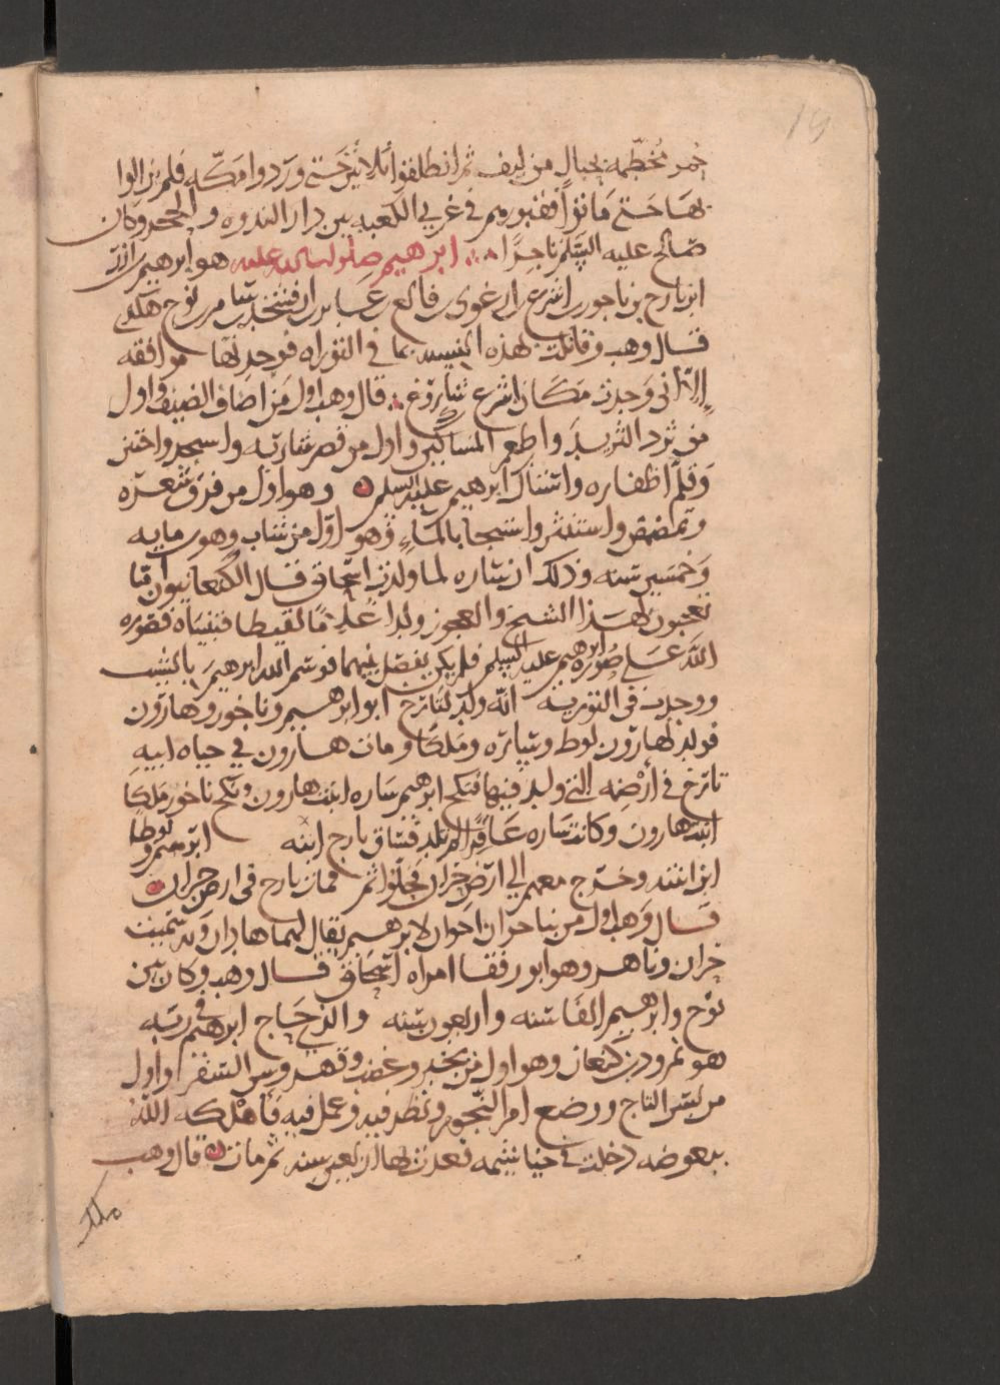 حمر مخطمه بحبال من ليف ثم انطلقوا آمين حتى وردوا مكه فلم يزالوا
بها حتى ماتوا فقبورهم في غربي الكعبه بين دار الندوه و الحجر وكان
صالح عليه السلم تاجرا ابرهيم صلوات الله عليه هو ابرهيم
ابن تارح بن ناحور بن اشرع بن ارغوى بن فالع بن عابر بن ارفخشد بن سام بن نوح هكذا
قال وهب وقابلت هذه النسبه بما في التوراه فوجدتها موافقه
الا انى وجدت مكان اشرع قال وهب اول من اضاف الضيف واول
من ثرد الثريد واطعم المساكين واول من قص شاربه واستحد واختتن
وقلم اظفاره واستاك ابرهيم عليه السلم وهو اول من فرق شعره
وتمضمض واستنثر واستنجا بالماء وهو اول من شاب وهو بن مايه
وخمسين سنه وذلك ان ساره لما ولدت اسحاق قال الكنعانيون اما
تعجبون لهذا الشيخ والعجوز وجدا غلاما لقيطا فتبنياه فصوره
الله على صوره ابرهيم عليه السلم فلم يكن يفصل بينهما فوسم الله ابرهيم بالشيب
ووجدت فى التوريه انه ولد لتارح ابو ابرهيم وناحور وهارون
فولد لهارون لوط وساره وملكا ومات هارون في حياه ابيه
تارح في ارضه التي ولد فيها فنكح ابرهيم ساره ابنت هارون ونكح ناحور ملكا
ابنت هارون وكانت ساره عاقرا لم تلد فساق تارح ابنه ابرهيم ولوطا
ابن ابنه وخرج معهم الى ارض حران فحلوا ثم فمات تارح في ارض حران
قال وهب اول من بنا حران اخوان لابرهيم يقال لهما هاران وبه سميت
حران وناهر وهو ابو رفقا امراه اسحاق قال وهب وكان بين
نوح وابرهيم الفا سنه واربعون سنه والذي حاج ابرهيم في ربه
هو نمرود بن كنعان وهو اول من تجبر وغصب وقهر وسن السنن واول
من لبس التاج ووضع امر النجوم ونظر فيه وعمل فيه فاهلكه الله
ببعوضه دخلت في خياشيمه فعذب بها اربعين سنه ثم مات قال وهب